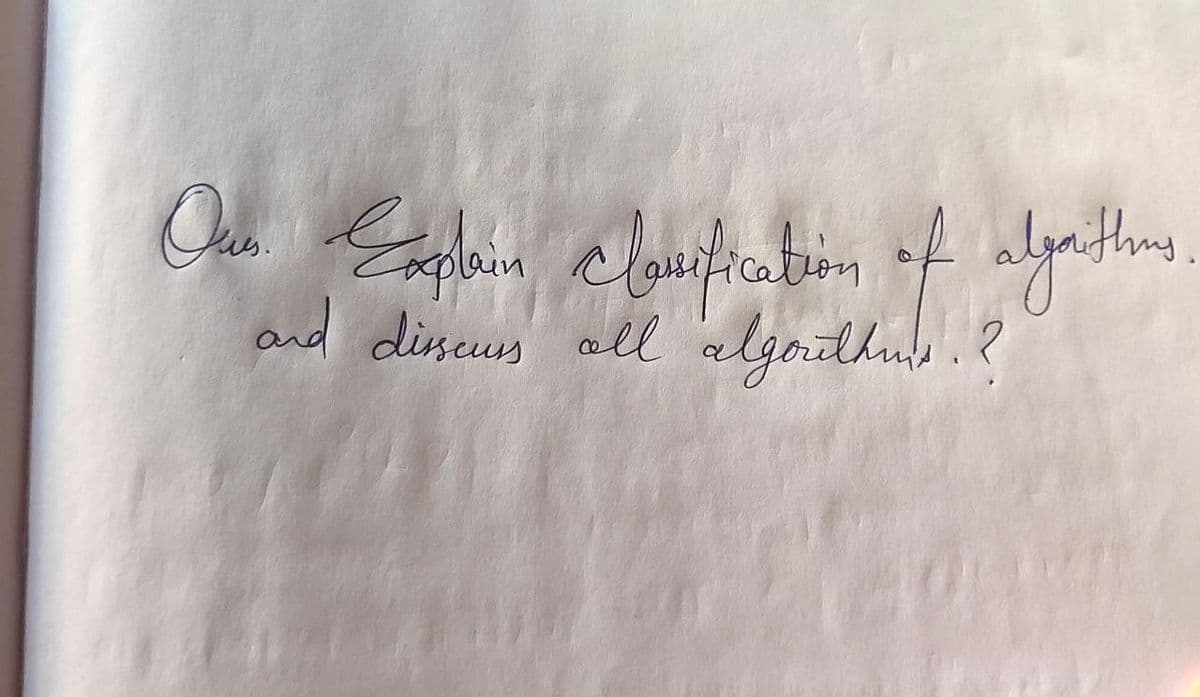 Ques. Explain classification of algorithms.
and disscuss all algorithms.?